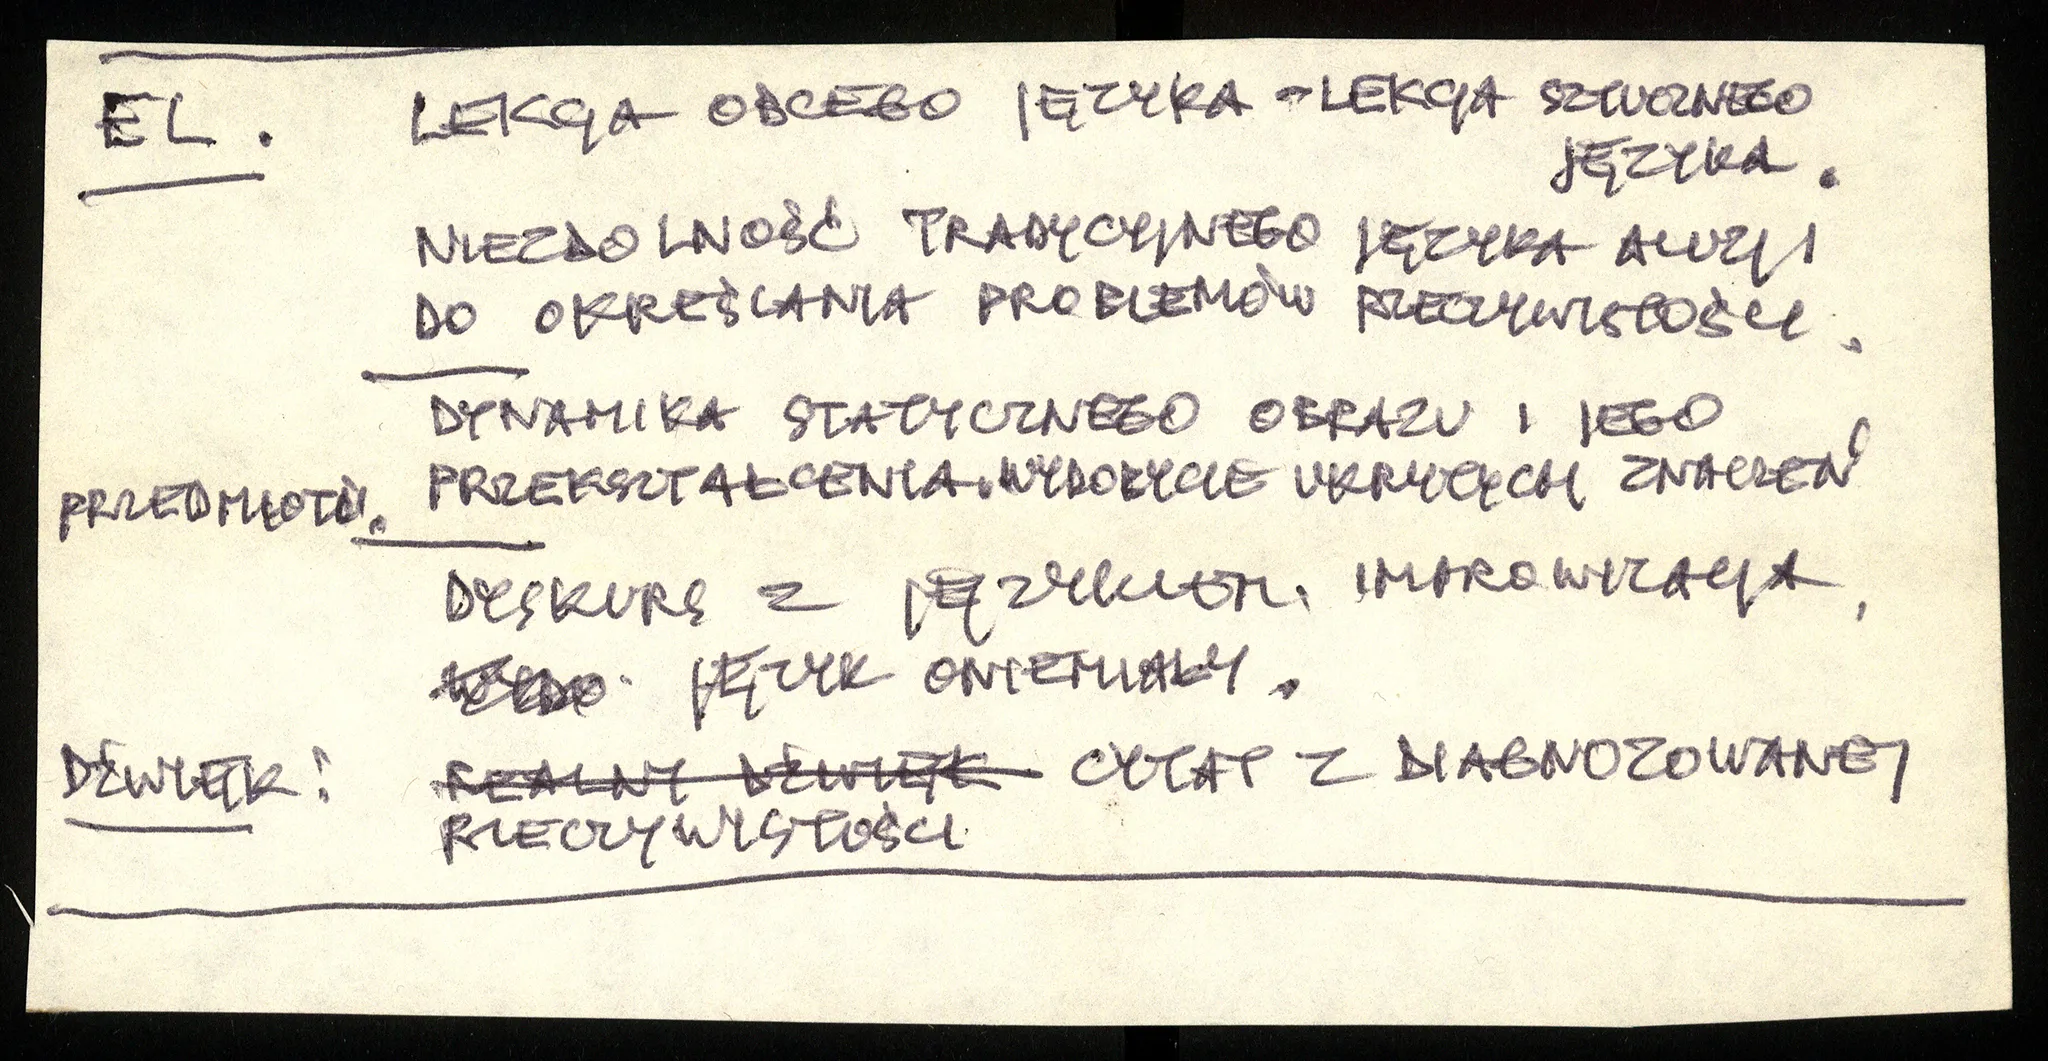 EL. LEKCJA OBCEGO JĘZYKA - LEKCJA SZTUCZNEGO
JĘZYKA.
NIEZDOLNOŚĆ TRADYCYJNEGO JĘZYKA ALUZJI
DO OKREŚLANIA PROBLEMÓW RZECZYWISTOŚCI.
DYNAMIKA STATYCZNEGO OBRAZU I JEGO
PRZEKSZTAŁCENIA. WYDOBYCIE UKRYTYCH ZNACZEŃ
PRZEDMIOTÓW.
DYSKURS Z JĘZYKIEM. IMPROWIZACJA,
JĘZYK ONIEMIAŁY.
DŹWIĘK: REALNY DŹWIĘK CYTAT Z DIAGNOZOWANEJ
RZECZYWISTOŚCI